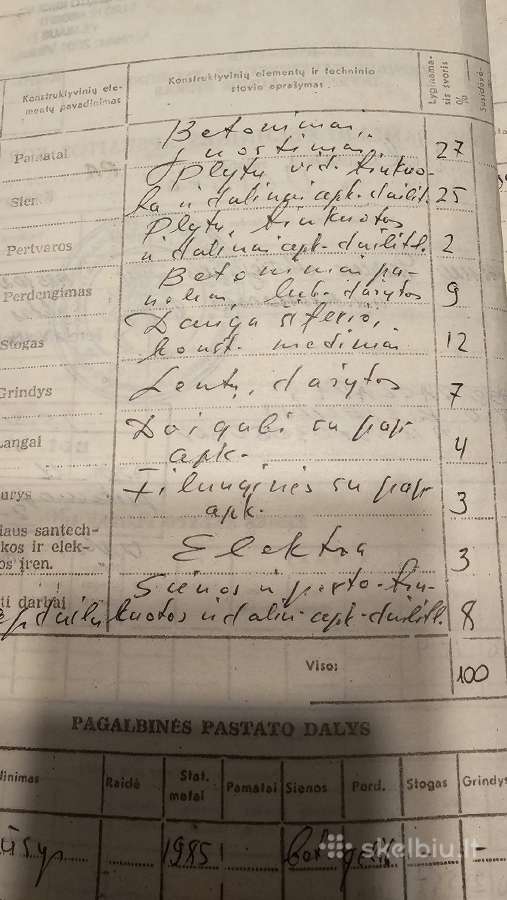 Konstruktyvinių ele-
mentų pavadinimas
Konstruktyvinių elementų ir techninio
stovio aprašymas
Lyginama-
sis svoris
%
Susidėvė-
Pamatai
Betoniniai,
juostiniai
27
Sien
Plytų vid. tinkuo-
ta ir dalinai apk. dailil.
25
Pertvaros
Plytų, tinkuotos
ir dalinai apk. dailitl.
2
Perdengimas
Betoniniai pa-
neliai, lub. dažytos
9
Stogas
Danga šiferio,
konst. mediniai
12
Grindys
Lentų, dažytos
7
Langai
Dvigubi su pap
apk.
4
urys
Filunginės su pap
apk.
3
iaus santech-
kos ir elek-
os įren.
Elektra
3
ti darbai
Sienos ir perto. tin-
kuotos ir dalin. apk. dailitl.
8
Viso:
100
PAGALBINĖS PASTATO DALYS
dinimas
Raidė
Stat.
metai
Pamatai
Sienos
Perd.
Stogas
Grindys
ūsys
1985
bet
gelž
-
skelbiu.lt